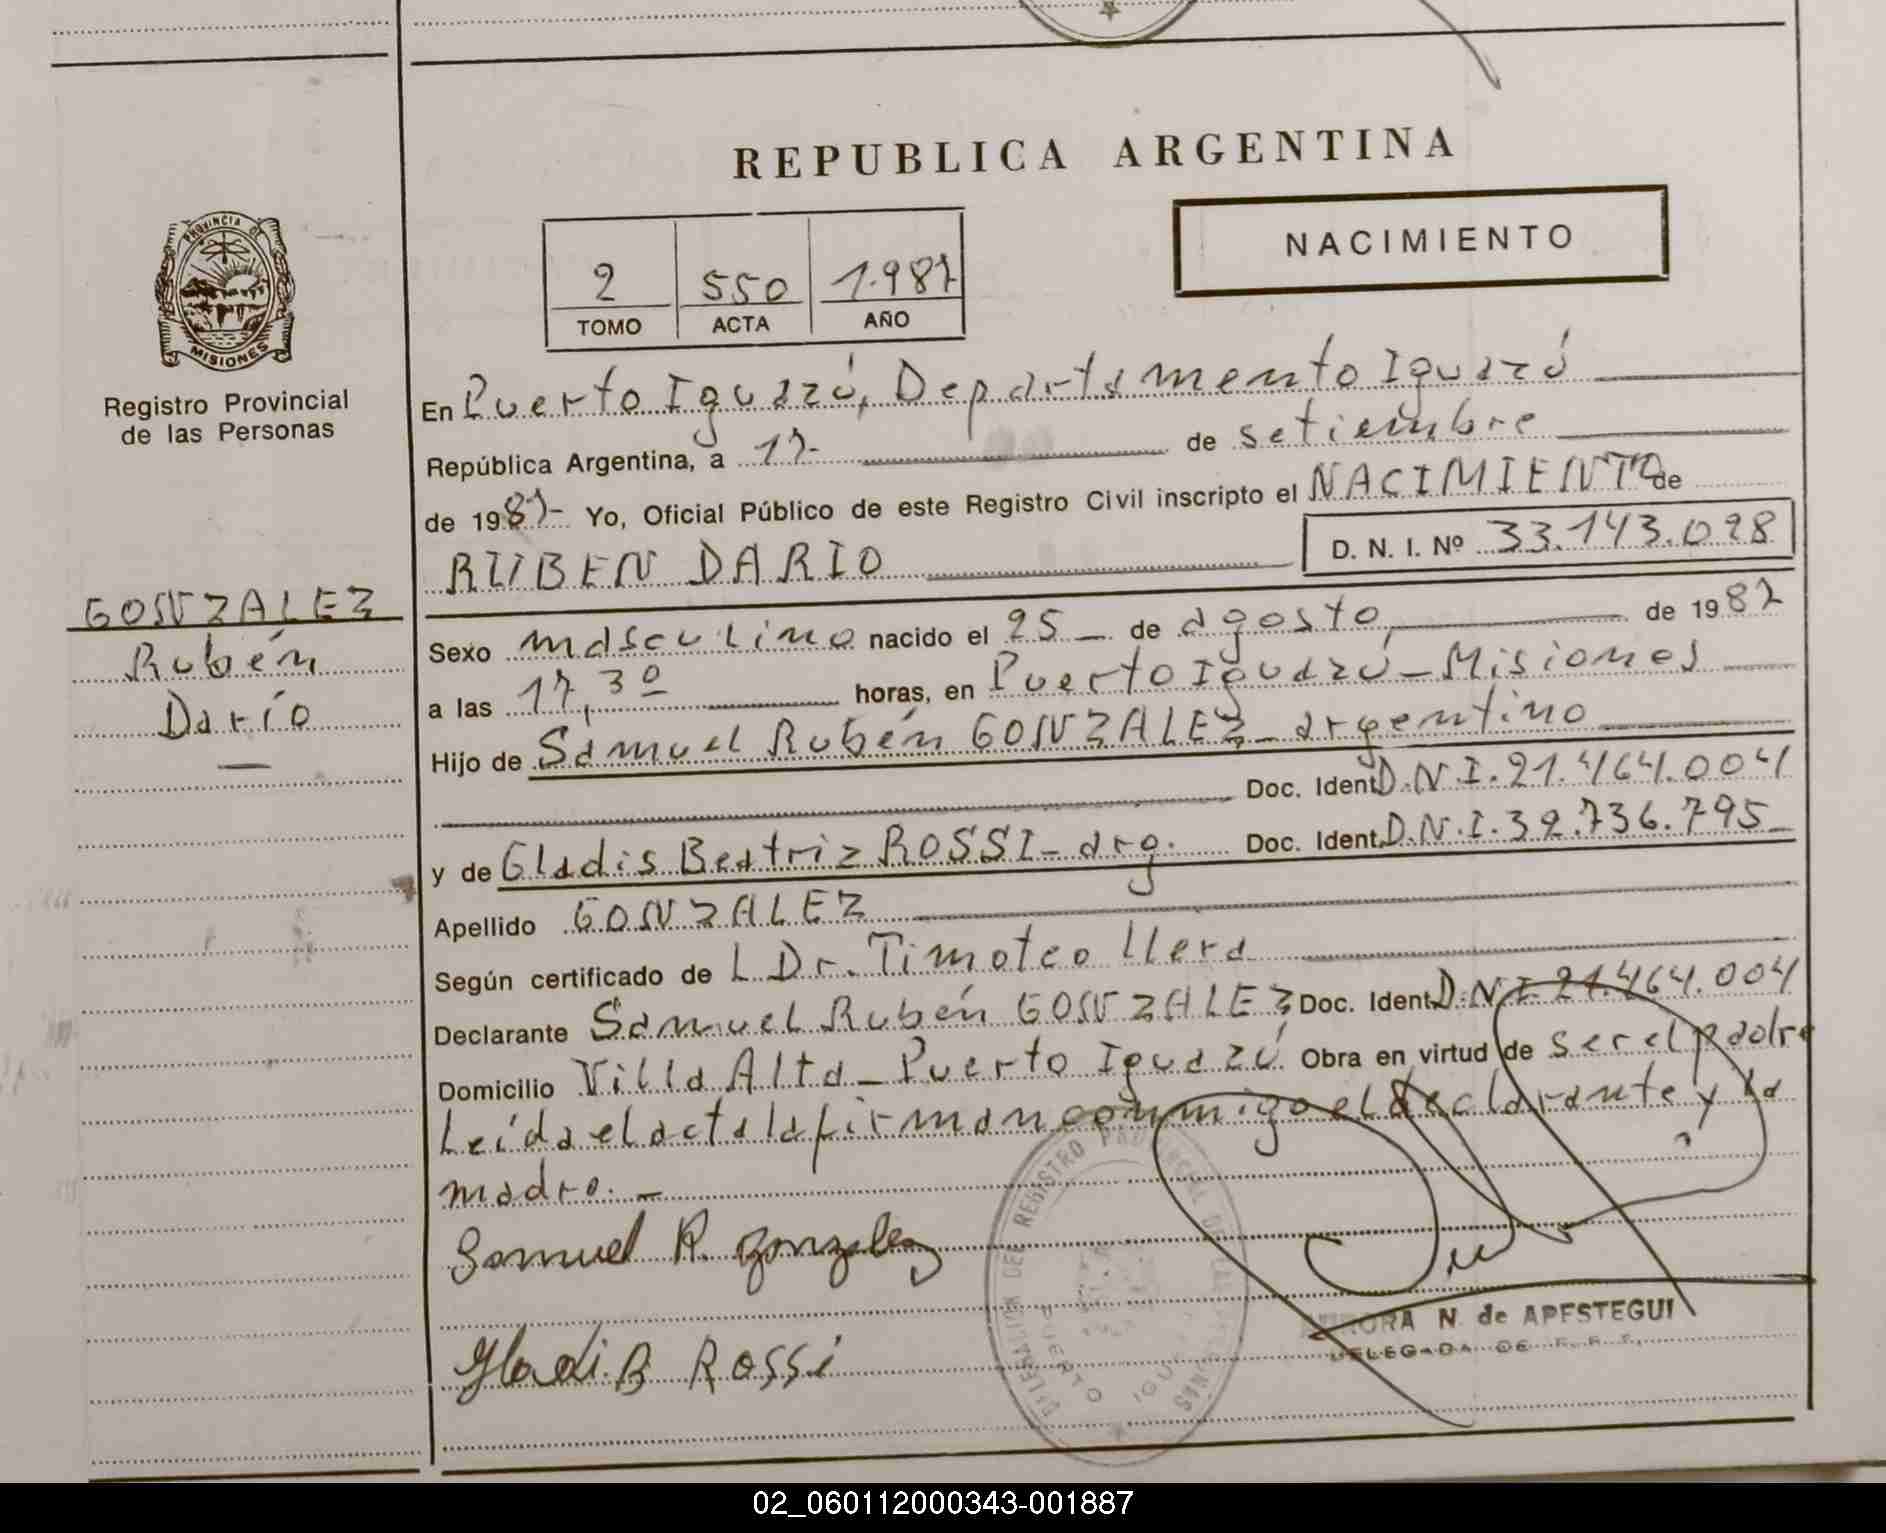 REPUBLICA ARGENTINA
NACIMIENTO
2 550 1.987
TOMO ACTA AÑO
PROVINCIA DE
MISIONES
Registro Provincial
de las Personas
GONZALEZ
Rubén
Darío
En Puerto Iguazú, Departamento Iguazú
República Argentina, a 17- de setiembre
de 1987- Yo, Oficial Público de este Registro Civil inscripto el NACIMIENTO de
RUBEN DARIO D. N. I. Nº 33.143.098
Sexo masculino nacido el 25 - de agosto, de 1987
a las 17,30 horas, en Puerto Iguazú - Misiones
Hijo de Samuel Rubén GONZALEZ - argentino
Doc. Ident. D.N.I. 21.464.004
y de Gladis Beatriz ROSSI - arg. Doc. Ident. D.N.I. 32.736.795-
Apellido GONZALEZ
Según certificado de L Dr. Timoteo Llera
Declarante Samuel Rubén GONZALEZ Doc. Ident. D.N.I. 21.464.004
Domicilio Villa Alta - Puerto Iguazú Obra en virtud de ser el padre
Leída el acta la firman conmigo el declarante y la
madre. -
Samuel R. Gonzalez
Gladi. B Rossi
DELEGACION DEL REGISTRO PROVINCIAL DE LAS PERSONAS
PUERTO IGUAZU
AURORA N. de APESTEGUI
DELEGADA DE
02_060112000343-001887